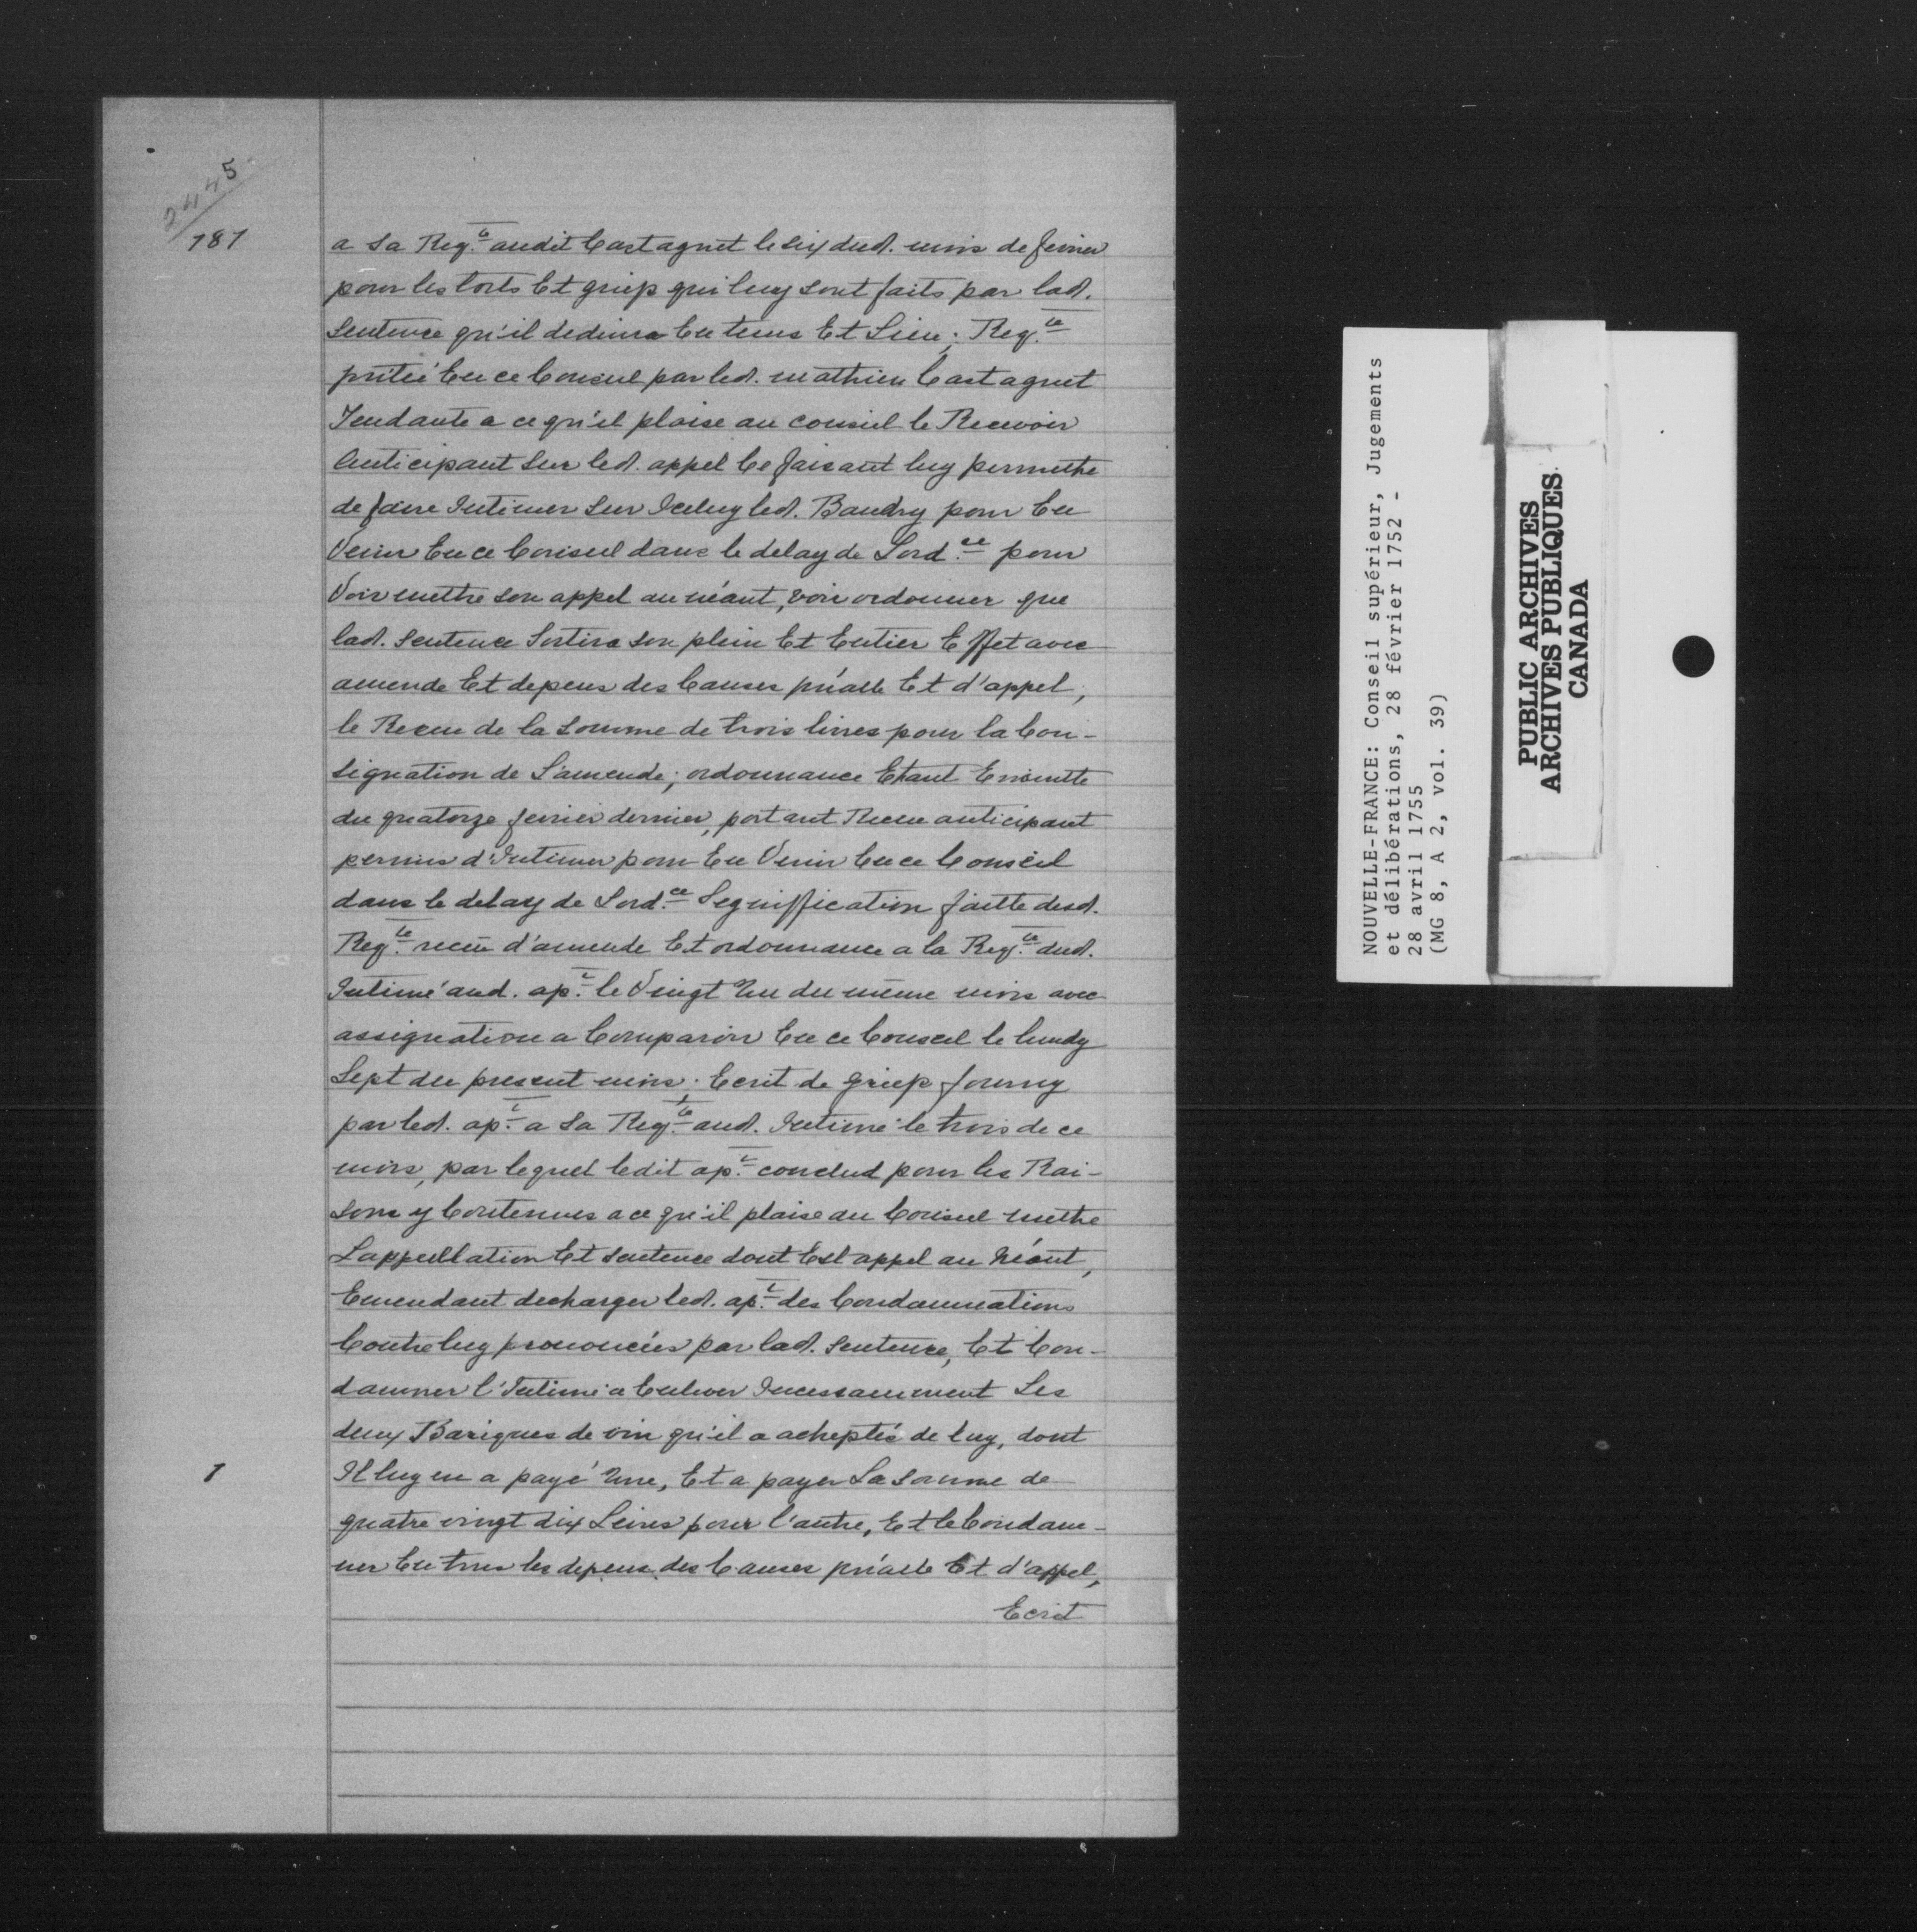 2445
181
a sa Req.te audit Castagnet le six dud. mois de fevrier
pour les torts Et griefs qui luy sont faits par lad.
Sentence qu'il deduira En tems Et Lieu; Req.te
pntée En ce Conseil par led. mathieu Castagnet
Tendante a ce qu'il plaise au conseil le Recevoir
Anticipant sur led. appel Ce faisant luy permettre
de faire Intimer sur Iceluy led. Baudry pour En
Venir En ce Conseil dans le delay de Lord.ce pour
Voir mettre son appel au néant, voir ordonner que
lad. Sentence Sortira son plein Et Entier Effet avec
amende Et depens des Causes p'ñalle Et d'appel;
le Receu de la somme de trois livres pour la Con-
signation de L'amende; ordonnance Etant Ensuitte
du quatorze fevrier dernier, portant Receu anticipant
permis d'Intimer pour En Venir En ce Conseil
dans le delay de Lord.ce Signiffication faitte desd.
Req.te receu d'amende Et ordonnance a la Req.te dud.
Intimé aud. ap.t le Vingt Un du même mois avec
assignation a Comparoir En ce Conseil le lundy
Sept du present mois; Ecrit de grief fourny
par led. ap.t a sa Req.te aud. Intimé le trois de ce
mois, par lequel ledit ap.t conclud pour les Rai-
sons y Contenues a ce qu'il plaise au Conseil mettre
L'appellation Et sentence dont Est appel au Néant,
Emendant decharger led. ap.t des Condamnations
Contre luy prononcées par lad. sentence, Et Con-
damner l'Intimé a Enlever Incessamment Les
deux Bariques de vin qu'il a acheptés de luy, dont
1
Il luy en a payé Une, Et a payer La somme de
quatre vingt dix Livres pour l'autre, Et le Condam-
ner En tous les depens des Causes p'ñalle Et d'appel,
Ecrit
NOUVELLE-FRANCE: Conseil supérieur, Jugements
et délibérations, 28 février 1752 -
28 avril 1755
(MG 8, A 2, vol. 39)
PUBLIC ARCHIVES
ARCHIVES PUBLIQUES
CANADA